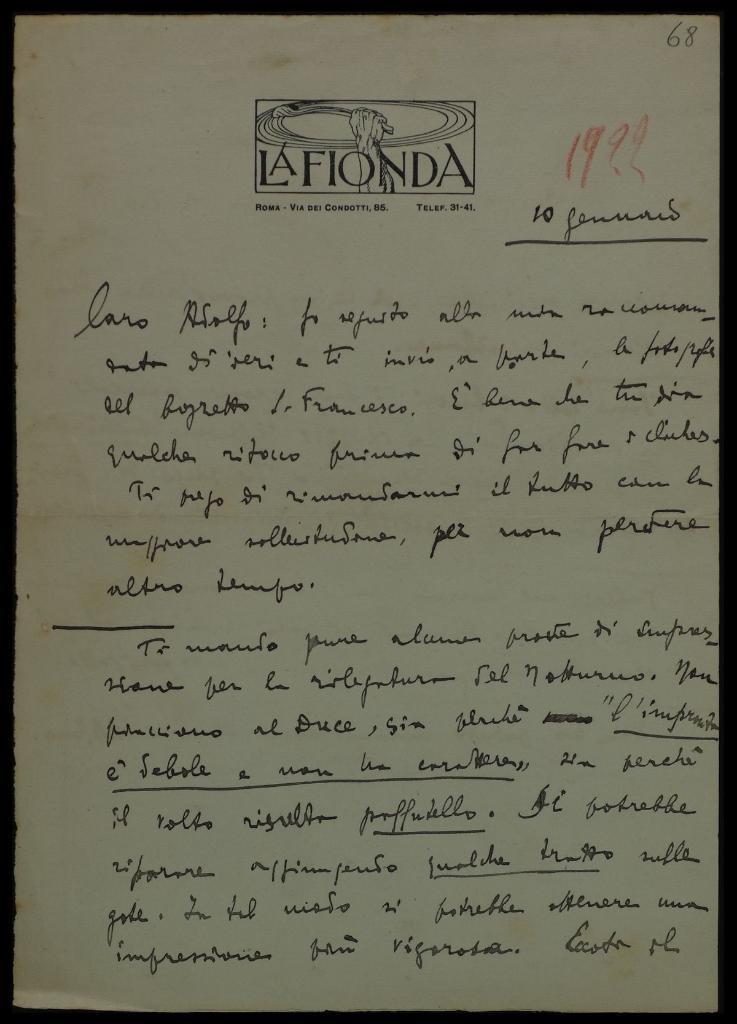 68
LA FIONDA
ROMA - VIA DEI CONDOTTI, 85. TELEF. 31-41.
1922
10 gennaio
Caro Adolfo: fo seguito alla mia raccoman-
data di ieri e ti invio, a parte, la fotografia
del bozzetto S. Francesco. È bene che tu dia
qualche ritocco prima di far fare i clichés.
Ti prego di rimandarmi il tutto con la
maggiore sollecitudine, per non perdere
altro tempo.
Ti mando pure alcune prove di impres-
sione per la rilegatura del Notturno. Non
piacciono al Duce, sia perché "l'impronta
è debole e non ha carattere", sia perché
il volto risulta paffutello. Si potrebbe
riparare aggiungendo qualche tratto sulle
gote. In tal modo si potrebbe ottenere una
impressione più vigorosa. il